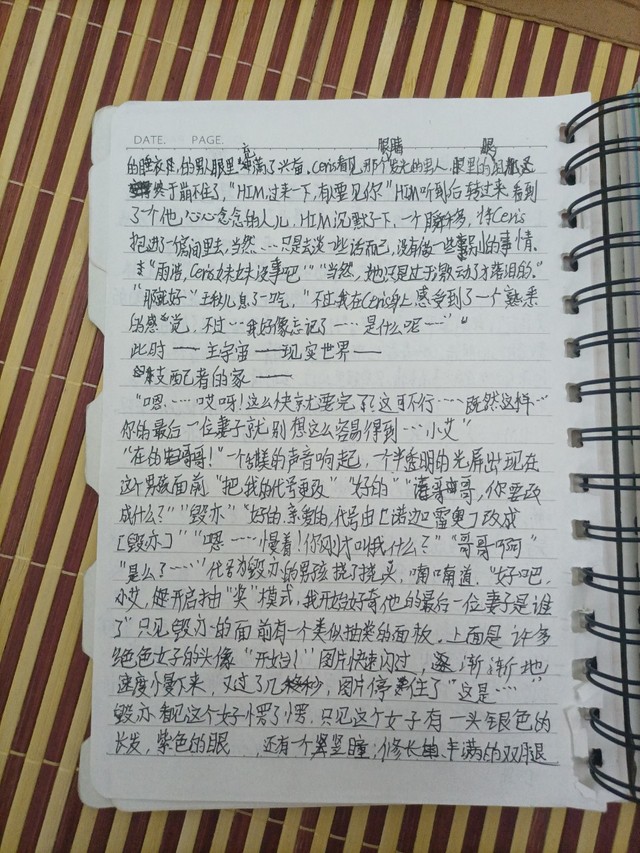 DATE. PAGE.
亮 眼睛 眼
的睡衣 的男人眼里 满了兴奋。Ceris看见那个发光的男人,眼里的泪
终于崩不住了,“HIM,过来一下,有人要见你”HIM听到后转过来,看到
了个他心心念念的人儿,HIM沉默了下,一个瞬移,将Ceris
抱进了房间里去,当然……只是去谈一些话而已,没有做一些别的事情。
“雨 ,Ceris妹妹没事吧”“当然,她只是过于激动了才落泪的。”
“那就好” 了一吃,“不过我在Ceris身上感受到了一个熟悉
的感觉,不过……我好像忘记了……是什么呢……”
此时——主宇宙——现实世界——
支配者的家——
“嗯……哎呀!这么快就要完了?这可不行……既然这样…
你的最后一位妻子就别想这么容易得到…小艾”
“在的 哥哥!”一个 美的声音响起,一个半透明的光屏出现在
这个男孩面前“把我的代号更改”“好的”“ 哥哥,你要改
成什么?”“毁亦”“好的,亲爱的,代号由[诺迦·雷奥]改成
[毁亦]”“嗯……慢着!你刚才叫我什么?”“哥哥啊”
“是么?……”代号为毁亦的男孩挠了挠头,喃喃道,“好吧,
小艾, 开启抽“奖”模式,我开始好奇他的最后一位妻子是谁
了”只见毁亦的面前有一个类似抽奖的面板,上面是许多
绝色女子的头像“开始!”图片快速闪过, 渐渐地
速度慢下来,又过了几秒,图片停住了“这是……”
毁亦看见这个女子愣了愣,只见这个女子有一头银色的
长发,紫色的眼 ,还有一个竖瞳;修长 丰满的双腿